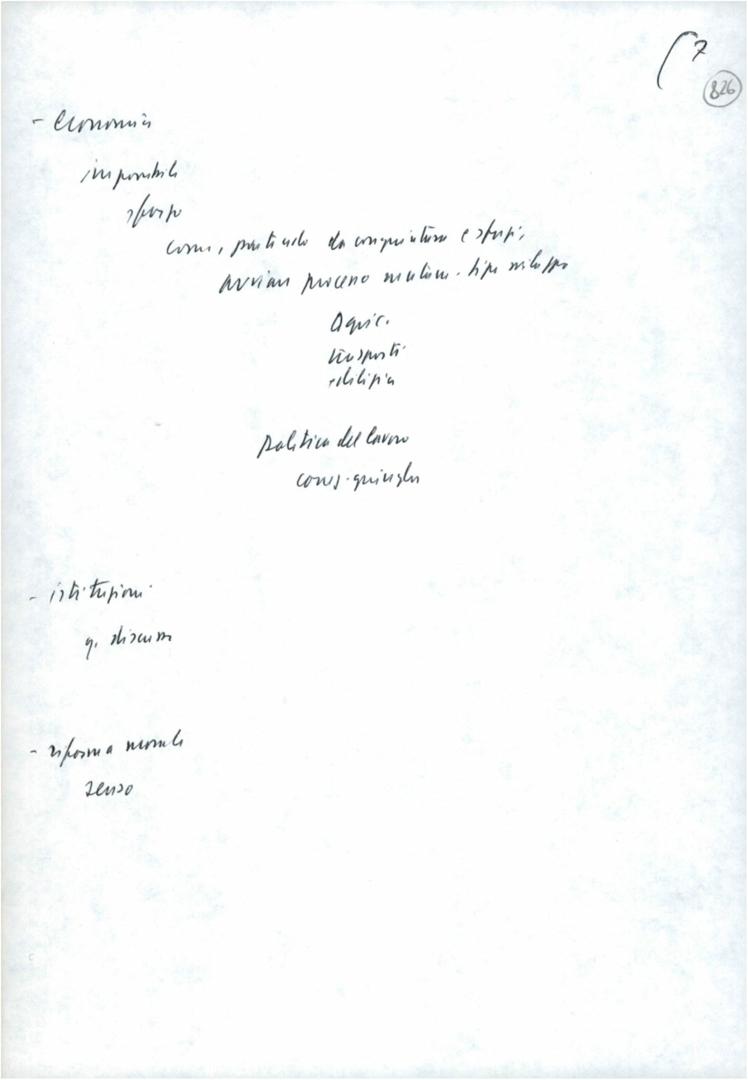 7
826
- economia
impossibile
sforzo
come, partendo da congiuntura e sforzi,
avviare processo mutam. tipo sviluppo
Agric.
trasporti
edilizia
politica del lavoro
cons.
- istituzioni
q. discusso
- riforma morale
senso